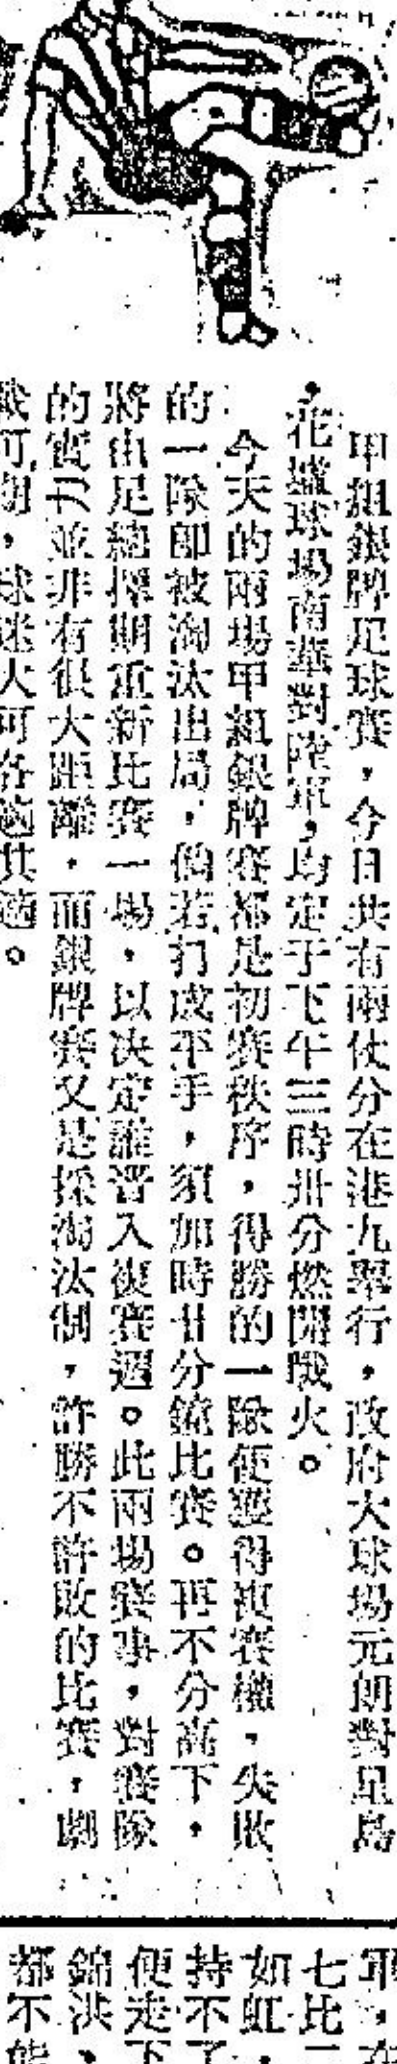 甲組銀牌足球賽，今日共有兩仗分在港九舉行，政府大球場元朗對星島
，花墟球場南華對陸軍，均定于下午三時卅分燃開戰火。
今天的兩場甲組銀牌賽都是初賽秩序，得勝的一隊便獲得複賽權，失敗
的一隊即被淘汰出局，倘若打成平手，須加時廿分鐘比賽。再不分高下，
將由足總擇期重新比賽一場，以决定誰晋入複賽週。此兩場賽事，對賽隊
的實力並非有很大距離，而銀牌賽又是採淘汰制，許勝不許敗的比賽，劇
戰可期，球迷大可各適其適。
軍，在
七比
如虹，
持不了
便走下
錦洪、
都不能